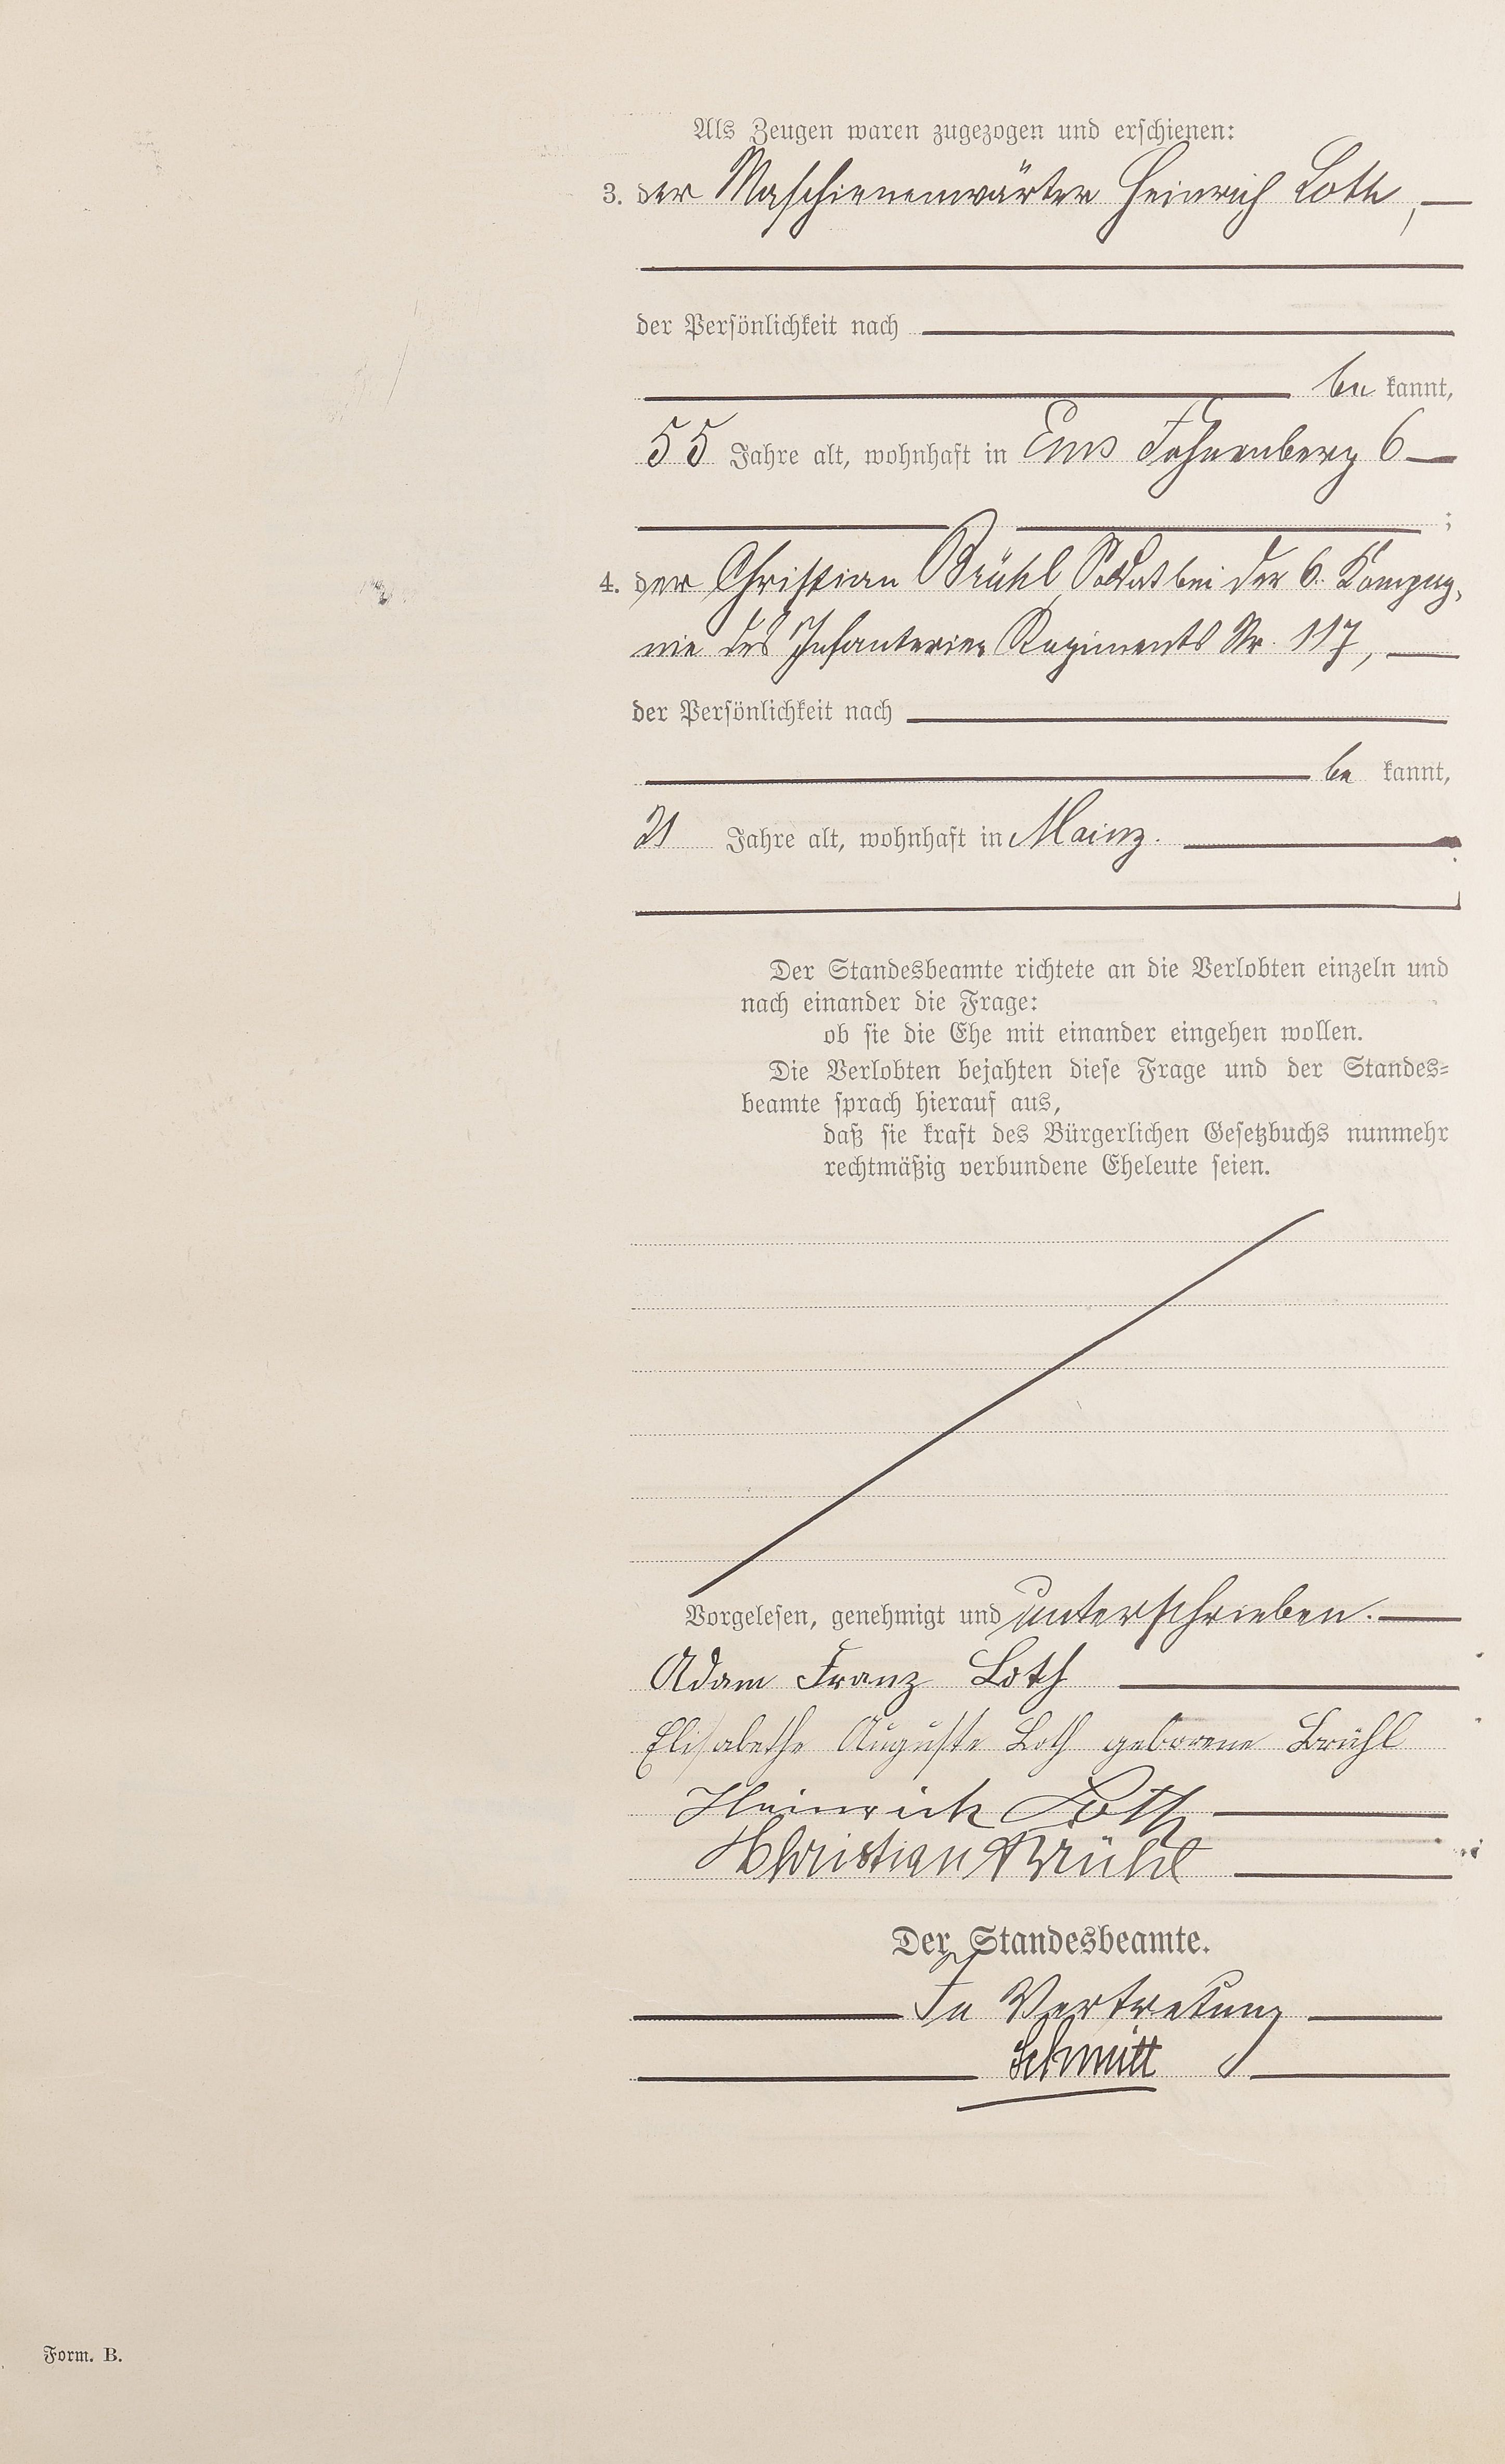 Als Zeugen waren zugezogen und erschienen:
3. der Maschienenwärter Heinrich Loth,
der Persönlichkeit nach
be kannt,
55 Jahre alt, wohnhaft in Ems Fahnenberg 6
;
4. der Christian Brühl, Soldat bei der 6. Kompag-
nie des Infanterie- Regiments Nr. 117,
der Persönlichkeit nach
be kannt,
21 Jahre alt, wohnhaft in Mainz.
Der Standesbeamte richtete an die Verlobten einzeln und
nach einander die Frage:
ob sie die Ehe mit einander eingehen wollen.
Die Verlobten bejahten diese Frage und der Standes-
beamte sprach hierauf aus,
daß sie kraft des Bürgerlichen Gesetzbuchs nunmehr
rechtmäßig verbundene Eheleute seien.
Vorgelesen, genehmigt und unterschrieben.
Adam Franz Loth
Elisabethe Auguste Loth geborene Brühl
Heinrich Loth
Christian Brühl
Der Standesbeamte.
In Vertretung
Schmitt
Form. B.